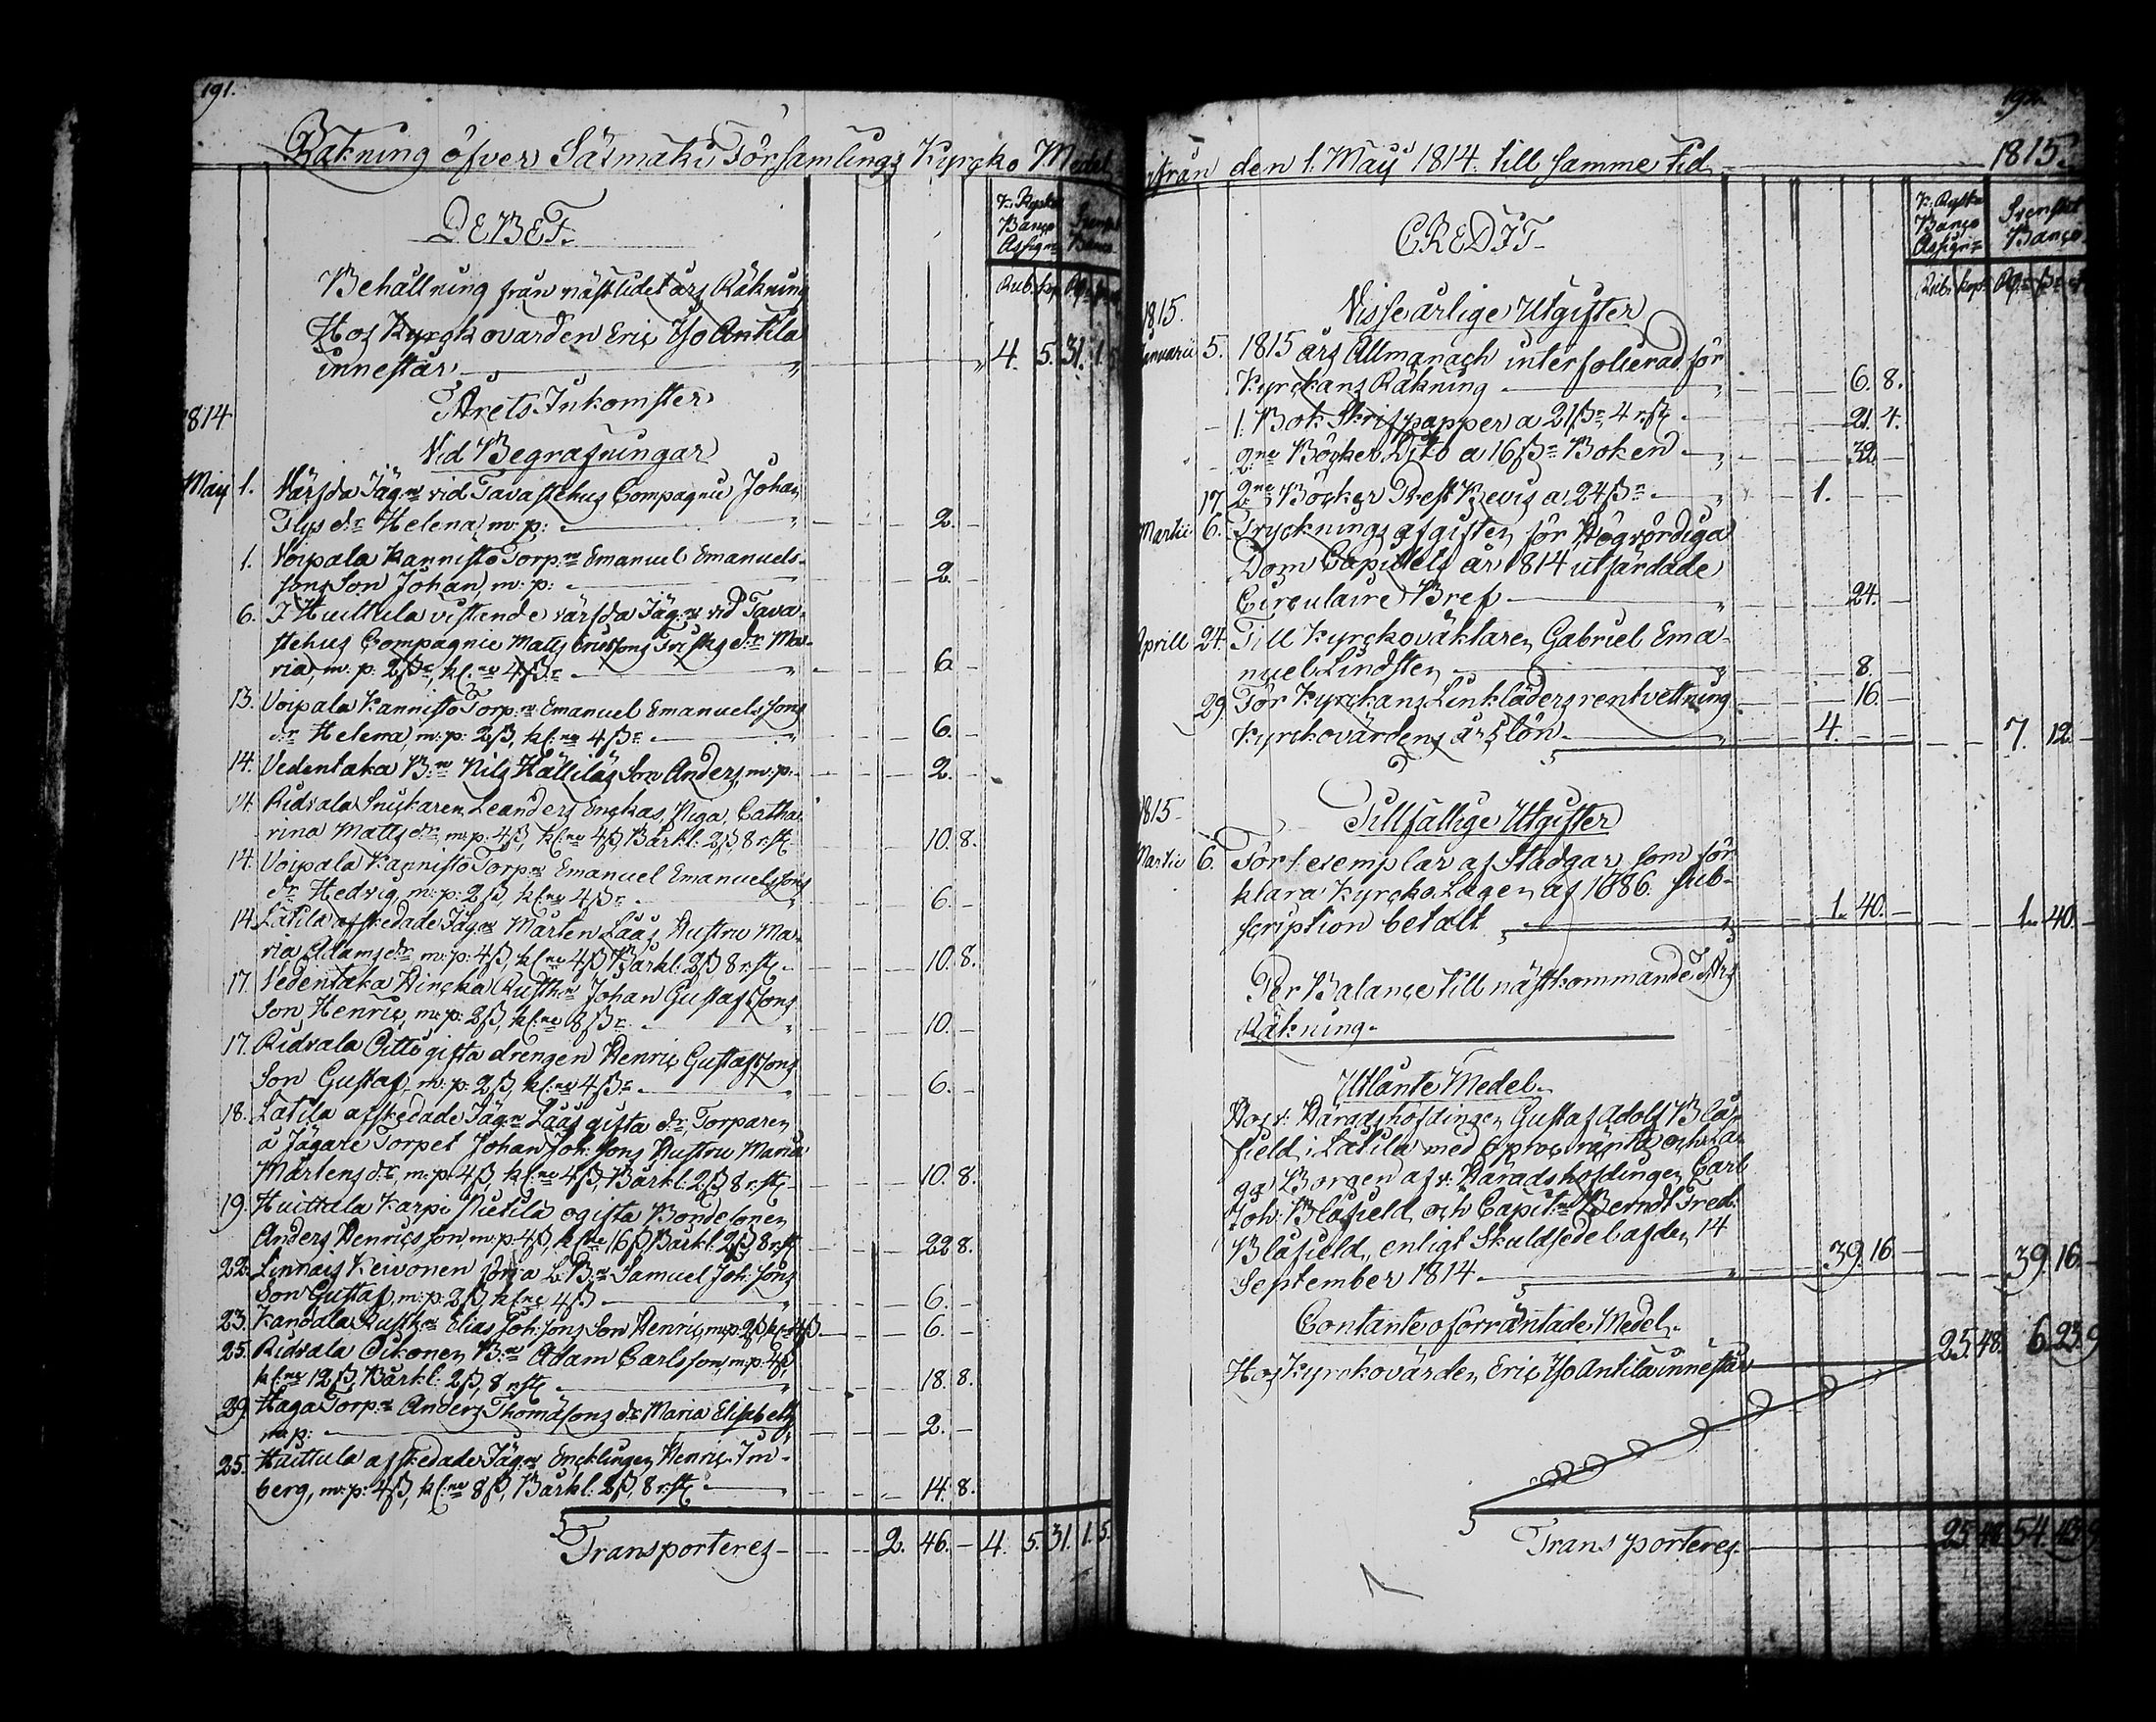 191.
Räkning öfver Säxmäki Församlings Kyrcko Medel
DEBET.
K: Ryska Banco Assign:r
Svenskt Banco
Rub: kop:
Behållning från nästledet års Räkning
Hos Kyrckovärden Eric Yso Anttila
innestår 4. 5. 31. 1. 5.
Årets Inkomster
1814
Vid Begrafningar
May 1. Värfda Jäg:n vid Tavastehus Compagnie Johan
Flys d:r Helena, m: p: 2. -
1. Voipala Kannisto Torp:n Emanuel Emanuels-
sons Son Johan, m: p: 2. -
6. I Huittula vistende värfda Jäg:n vid Tava-
stehus Compagnie Matts Ericssons Frisks d:r Ma-
ria, m: p: 2 ß, kl:ne 4 ß 6 -
13. Voipala Kannisto Torp:n Emanuel Emanuelssons
d:r Helena, m: p: 2 ß, kl:ne 4 ß 6. -
14. Vedentaka B:n Nils Hälliläs Son Anders, m: p: 2. -
14. Ridvala Snickaren Leanders Enckas, Piga, Catha-
rina Matts d:r m: p: 4 ß, kl:ne 4 ß, Bårkl: 2 ß, 8 rst. 10. 8.
14. Voipala Kannisto Torp:n Emanuel Emanuelssons
d:r Hedvig, m: p: 2 ß, kl:ne 4 ß 6. -
14. Latila afskedade Jäg:n Mårten Lääs Hustru Ma-
ria Adams d:r m: p: 4 ß, kl:ne 4 ß Bårkl: 2 ß 8 rst. 10. 8.
17. Vedentaka Hincka Rusth:n Johan Gustafssons
Son Henric, m: p: 2 ß, kl:ne 8 ß 10. -
17. Ridvala Ditto gifta drengen Henric Gustafssons
Son Gustaf, m: p: 2 ß, kl:ne 4 ß 6. -
18. Latila afskedade Jäg:n Lääs gifta d:r, Torparen
å Jägare Torpet Johan Joh: sons Hustru Maria
Mårtens d:r, m: p: 4 ß, kl:ne 4 ß, Bårkl: 2 ß 8 rst. 10. 8.
19. Huittula Karpi Pietilä ogifta Bondesonen
Anders Henricsson, m: p: 4 ß, kl:ne 16 ß, Bårkl: 2 ß 8 rst. 22 8.
22. Linnais Kervonen L: B:n Samuel Joh: sons
Son Gustaf, m: p: 2 ß, kl:ne 4 ß 6. -
23. Kandala Rusth:n Elias Joh: sons Son Henric, m: p: 2 ß, kl:ne 4 ß 6. -
25. Ridvala Oikonen B:n Adam Carlsson, m: p: 4 ß,
kl:ne 12 ß, Bårkl: 2 ß, 8 rst. 18. 8.
29. Haga Torp:n Anders Thomäsons d:r Maria Elisabeth
m: p: 2. -
25. Huittula afskedade Jäg:n Encklingen Henric Im-
berg, m: p: 4 ß, kl:ne 8 ß, Bårkl: 2 ß, 8 rst. 14. 8.
Transporteres - 2. 46. - 4. 5. 31. 1. 5.
från den 1. May 1814. till samme tid 1815.
CREDIT.
K: Ryska Banco Assign:r
Svenskt Banco
Rub: kop:
1815.
Visse årlige Utgifter
Januarii 5. 1815 års Allmanach interfolierad för
Kyrckans Räkning 6. 8.
1. Bok Skrifpapper a 21 ß 4 rst. 21. 4.
2:ne Böcker Dito a 16 ß Boken 32 -
17 2:ne Böcker Prest Bevis a 24 ß 1. - -
Martii 6. Trycknings afgiften för Högvördiga
Dom Capitlets år 1814 utfärdade
Circulaire Bref 24. -
Aprill 24. Till Kyrckoväktaren Gabriel Ema-
nuel Lindsten 8. -
29. För Kyrckans Linkläders rentvettning 16. -
Kyrckovärdens års lön 4. - - 7. 12. -
1815.
Tillfällige Utgifter
Martii 6. För 1. exemplar af Stadgar, som för
klara Kyrcko Lagen af 1686. sub-
scription betalt 1. 40. - 1. 40. -
Per Balance till nästkommande Års
Räkning.
Utlånte Medel.
Hos v: Häradshöfdingen Gustaf Adolf Blå-
field, i Latila med 6 proc: ränta och
Borgen af v: Häradshöfdingen Carl
Joh: Blåfield, och Capit:n Berndt Fred:
Blåfield, enligt Skuldsedel af den 14
September 1814 39. 16 - 39. 16. -
Contante oförräntade Medel.
Hos Kyrckovärden Eric Yso Anttila innestår 25. 48. 6. 23. 9
Transporteres. 25. 48. 54. 43. 9